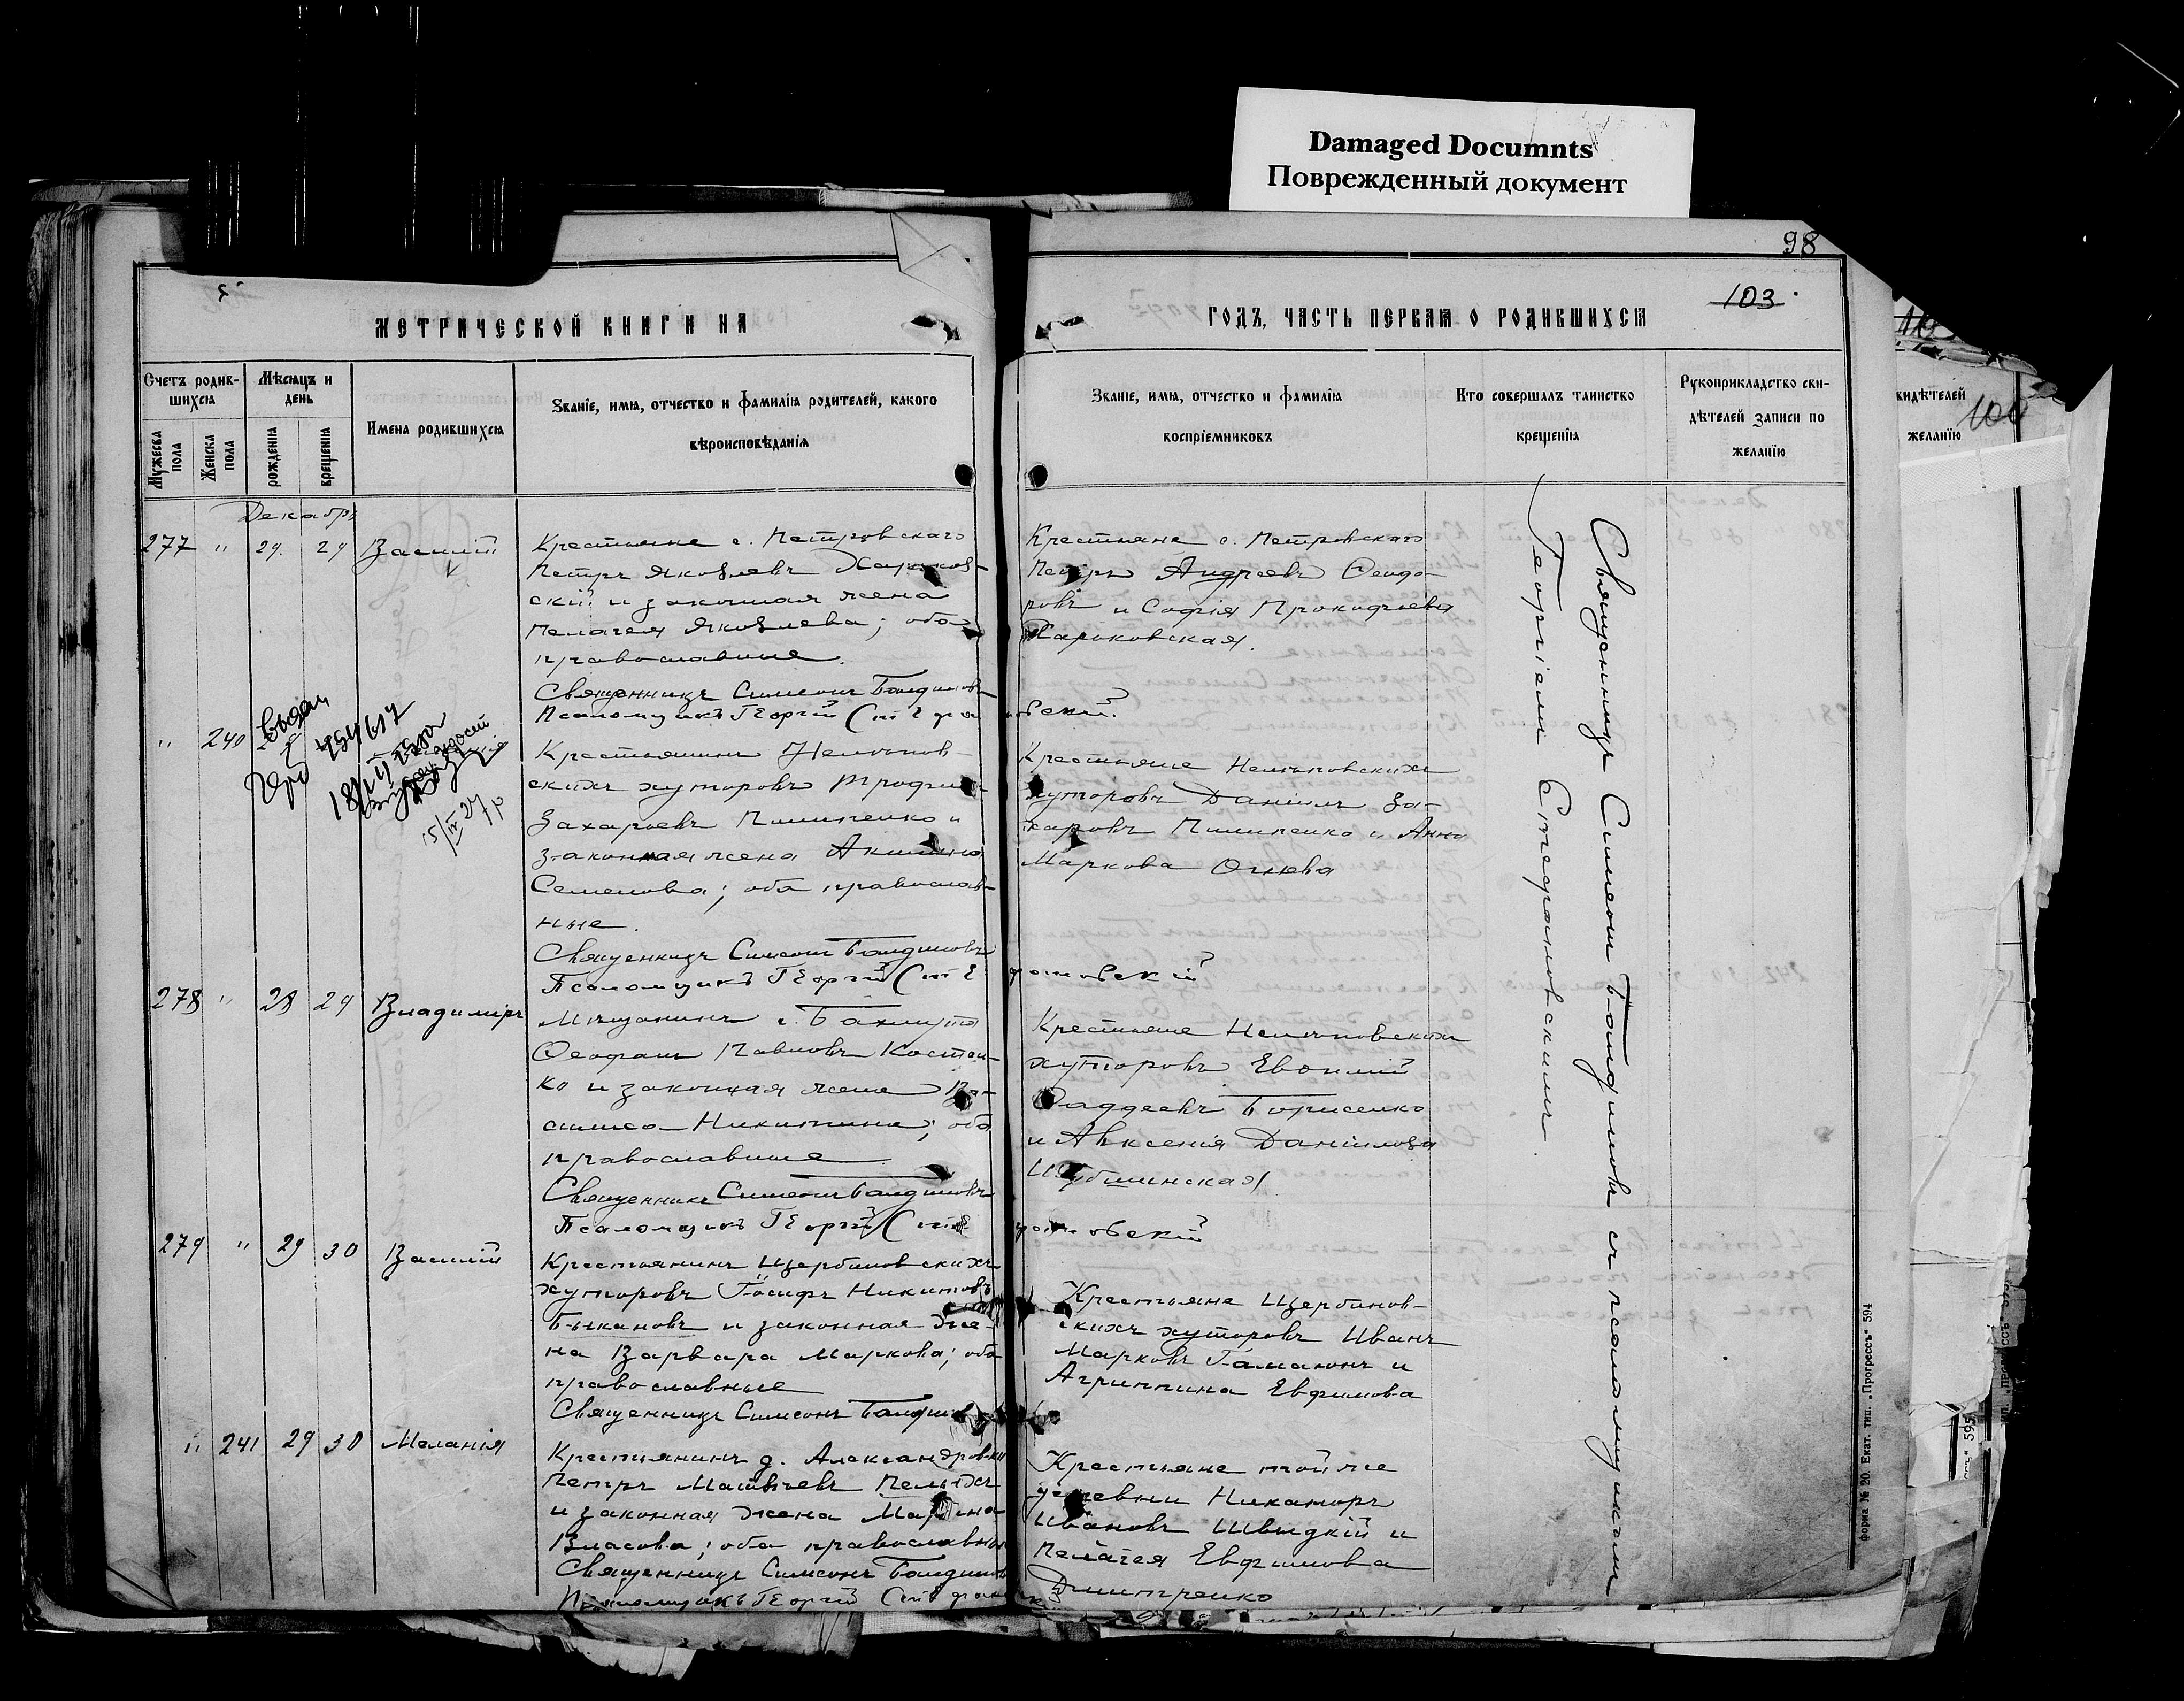 Damaged Documnts
Поврежденный документ
98
103
МЕТРИЧЕСКОЙ КНИГИ НА
ГОДЪ, ЧАСТЬ ПЕРВАЯ О РОДИВШИХСЯ
Счетъ родив-
шихся
Мужеска пола
Женска пола
Мѣсяцъ и
день
рожденія
крещенія
Имена родившихся
Званіе, имя, отчество и фамилія родителей, какого
вѣроисповѣданія
Званіе, имя, отчество и фамилія
воспріемниковъ
Кто совершалъ таинство
крещенія
Рукоприкладство сви-
дѣтелей записи по
желанію
видѣтелей
100
желанію
Декабрь
277 " 29. 29 Василій
Крестьяне с. Петровскаго
Петръ Яковлевъ Харьков-
скій и законная жена
Пелагея Яковлева; оба
православные.
Священникъ Симеонъ Балдиновъ
Псаломщикъ Георгій Стефановскій
Крестьяне с. Петровскаго
Петръ Андреевъ Феодо-
ровъ и Софія Прокофьева
Харьковская.
" 240
Крестьянинъ Нелѣпов-
скихъ хуторовъ Трофимъ
Захарьевъ Пилипенко и
законная жена Акилина
Семенова; оба православ-
ные.
Священникъ Симеонъ Балдиновъ
Псаломщикъ Георгій Стефановскій
Крестьяне Нелѣповскихъ
хуторовъ Даніилъ За-
харовъ Пилипенко и Анна
Маркова Огнева
278 " 28 29 Владиміръ
Мѣщанинъ г. Бахмута
Феофанъ Павловъ Костен-
ко и законная жена Ва-
силиса Никитина; оба
православные.
Священникъ Симеонъ Балдиновъ
Псаломщикъ Георгій Стефановскій
Крестьяне Нелѣповскихъ
хуторовъ Евѳимій
Фаддеевъ Борисенко
и Авксенія Даніилова
279 " 29 30 Василій
Крестьянинъ Щербиновскихъ
хуторовъ Іосифъ Никитовъ
Быкановъ и законная же-
на Варвара Маркова; оба
православные
Священникъ Симеонъ Балдиновъ
Крестьяне Щербинов-
скихъ хуторовъ Иванъ
Марковъ Гамаюнъ и
Агриппина Евфимова
" 241 29 30 Меланія
Крестьянинъ д. Александровки
Петръ Матвѣевъ
и законная жена
Власова; оба православные
Священникъ Симеонъ Балдиновъ
Псаломщикъ Георгій Стефановскій
Крестьяне той же
деревни Никаноръ
Ивановъ Швыдкій и
Пелагея Евфимова
Дмитренко
Священникъ Симеонъ Балдиновъ съ псаломщикомъ
Георгіемъ Стефановскимъ.
форма № 20. Екат. тип. „Прогрессъ" 594